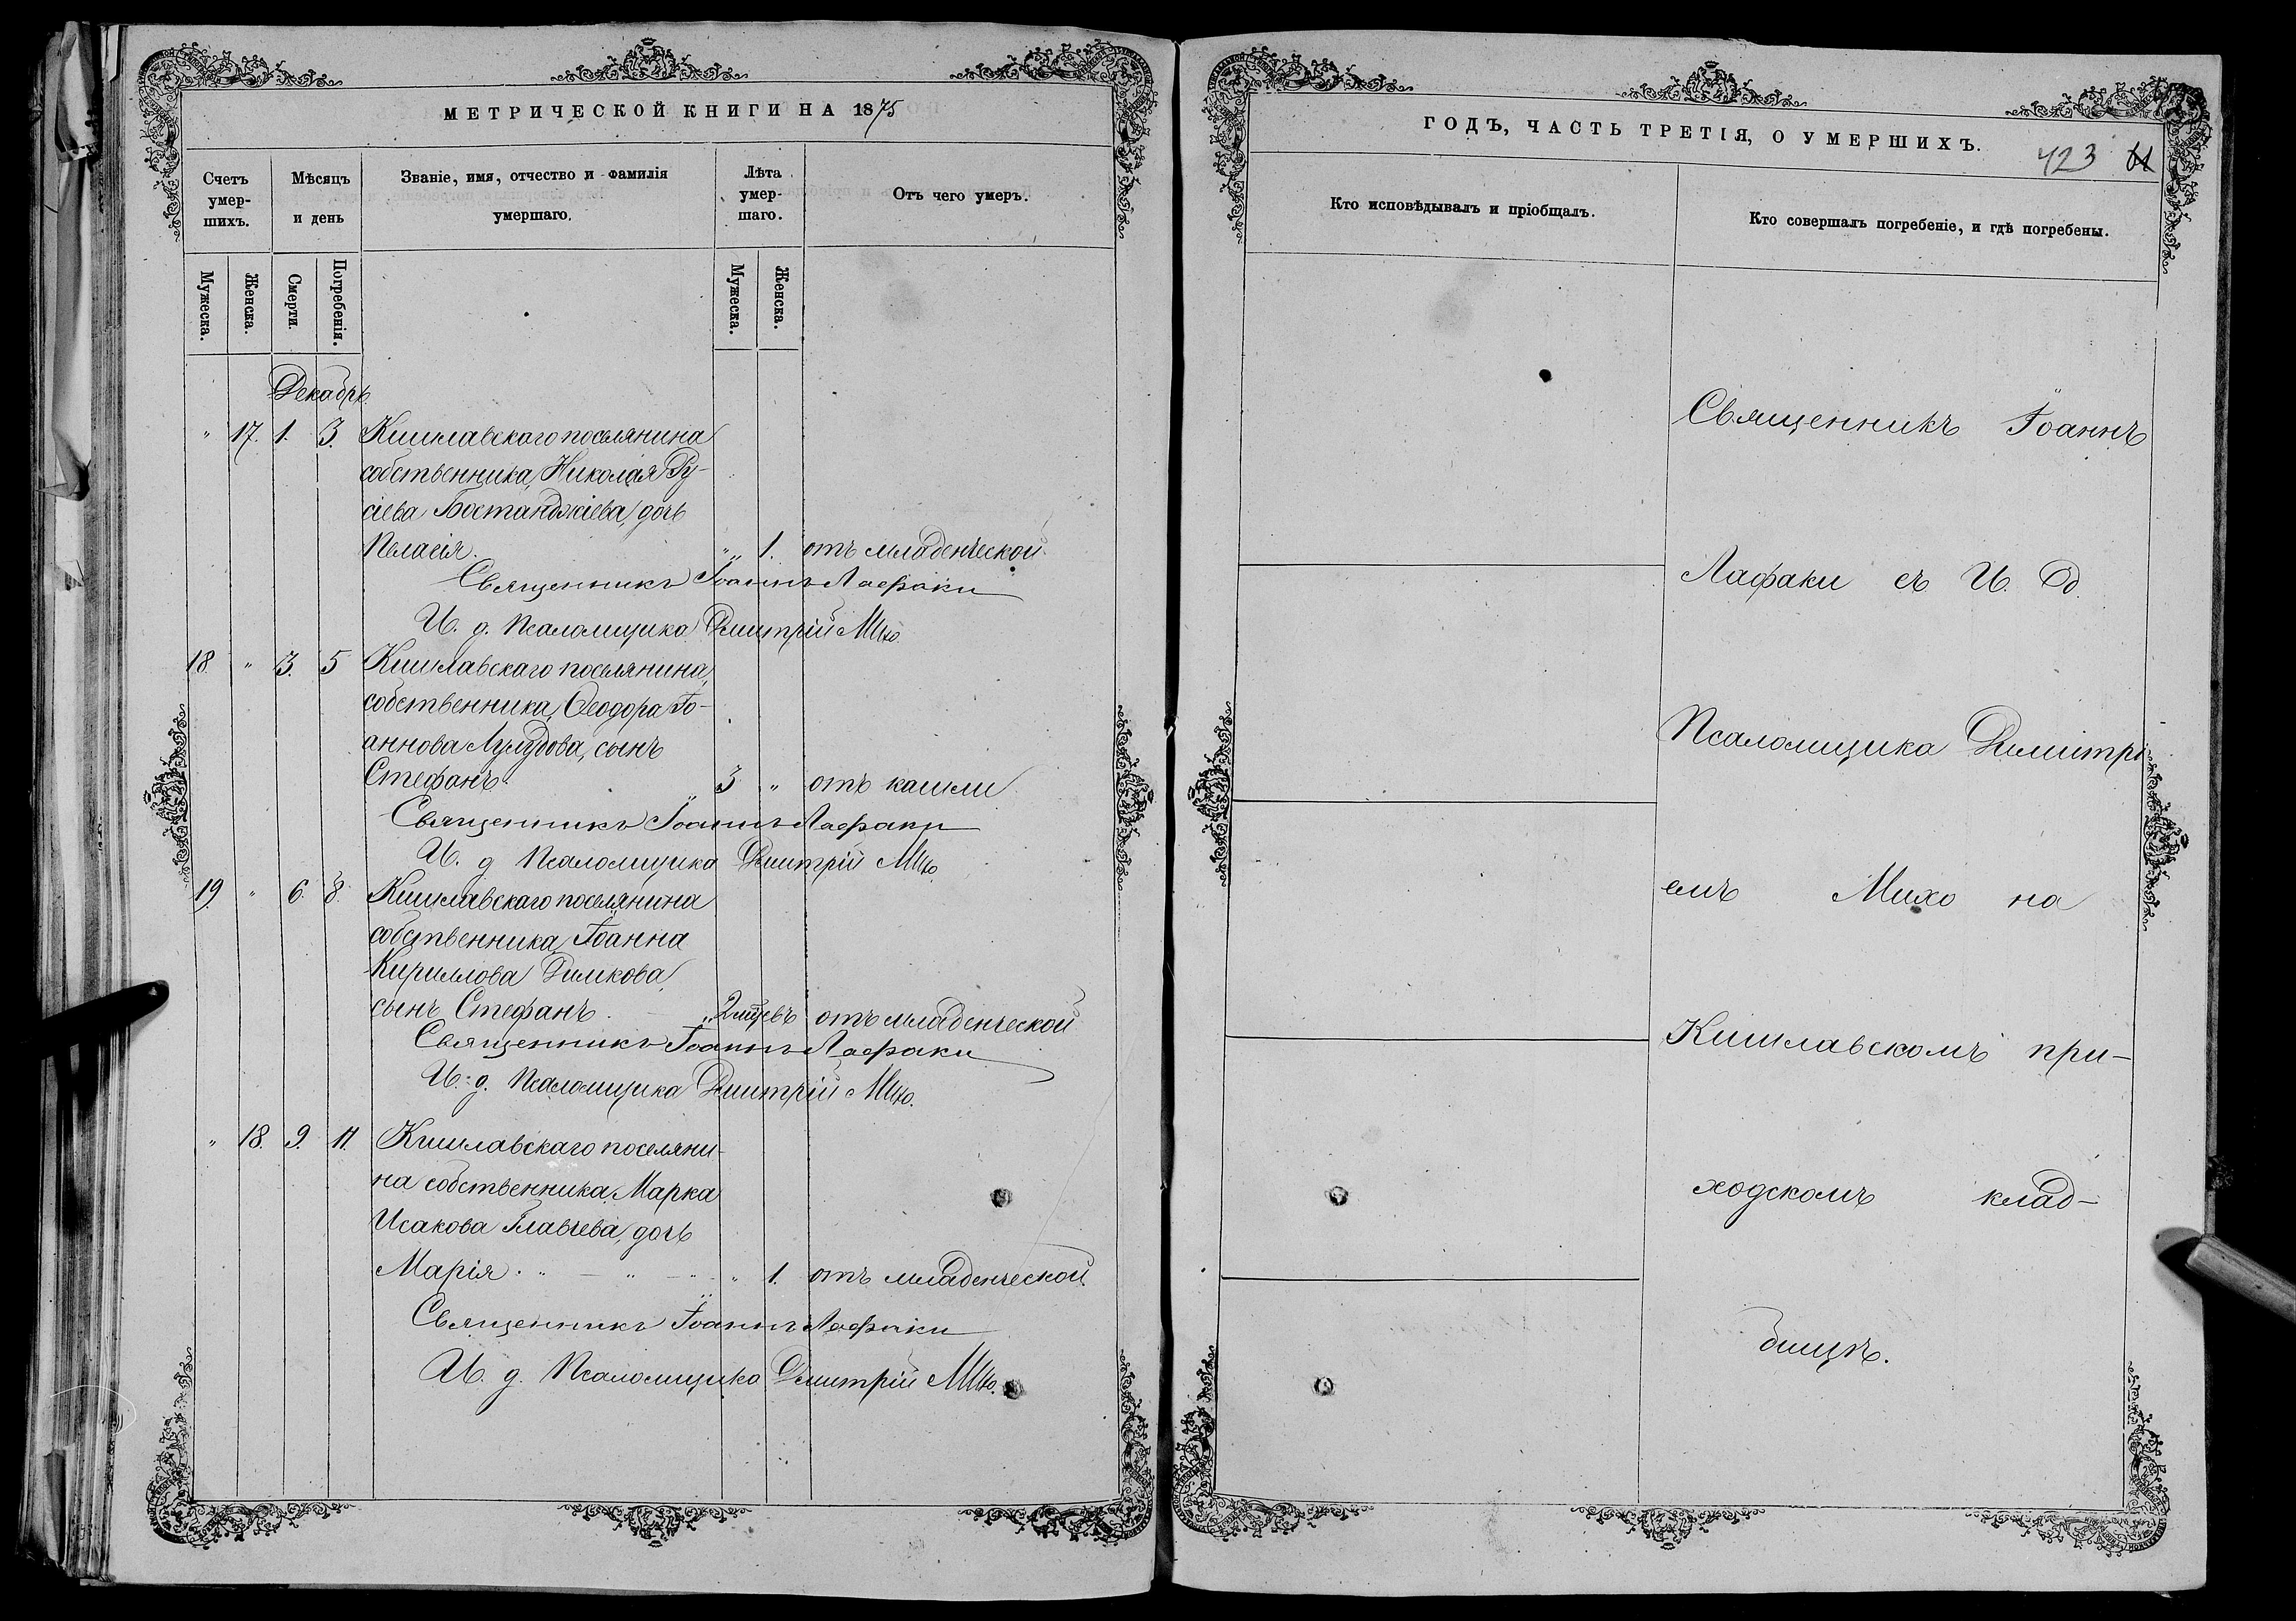 МЕТРИЧЕСКОЙ КНИГИ НА 1875
Счетъ умер-
шихъ.
Мѣсяцъ
и день
Званіе, имя, отчество и фамилія
умершаго.
Лѣта
умер-
шаго.
Отъ чего умеръ.
Мужеска.
Женска.
Смерти.
Погребенія.
Мужеска.
Женска.
Декабрь
" 17. 1. 3. Кишлавскаго поселянина
собственника, Николая Ру-
сіева Бостанджіева, дочь
Пелагія. " 1. отъ младенческой
Священникъ Іоаннъ Лафаки
И. д. Псаломщика Димитрій Михо
18. " 3. 5 Кишлавскаго поселянина,
собственника, Ѳеодора Іо-
аннова Лулудова, сынъ
Стефанъ 3 " отъ кашли
Священникъ Іоаннъ Лафаки
И. д Псаломщика Димитрій Михо
19. " 6. 8. Кишлавскаго поселянина
собственника, Іоанна
Кириллова Димкова,
сынъ Стефанъ. 2 мцевъ отъ младенческой
Священникъ Іоаннъ Лафаки
И. д. Псаломщика Димитрій Михо.
" 18. 9. 11. Кишлавскаго поселяни-
на собственника, Марка
Исакова Главчева, дочь
Марія. " — " — " 1. отъ младенческой
Священникъ Іоаннъ Лафаки
И. д. Псаломщика Димитрій Михо.
ГОДЪ, ЧАСТЬ ТРЕТІЯ, О УМЕРШИХЪ.
423
Кто исповѣдывалъ и пріобщалъ.
Кто совершалъ погребеніе, и гдѣ погребены.
Священникъ Іоаннъ
Лафаки съ И. Д.
Псаломщика Димитрі-
емъ Михо на
Кишлавскомъ при-
ходскомъ клад-
бищѣ.